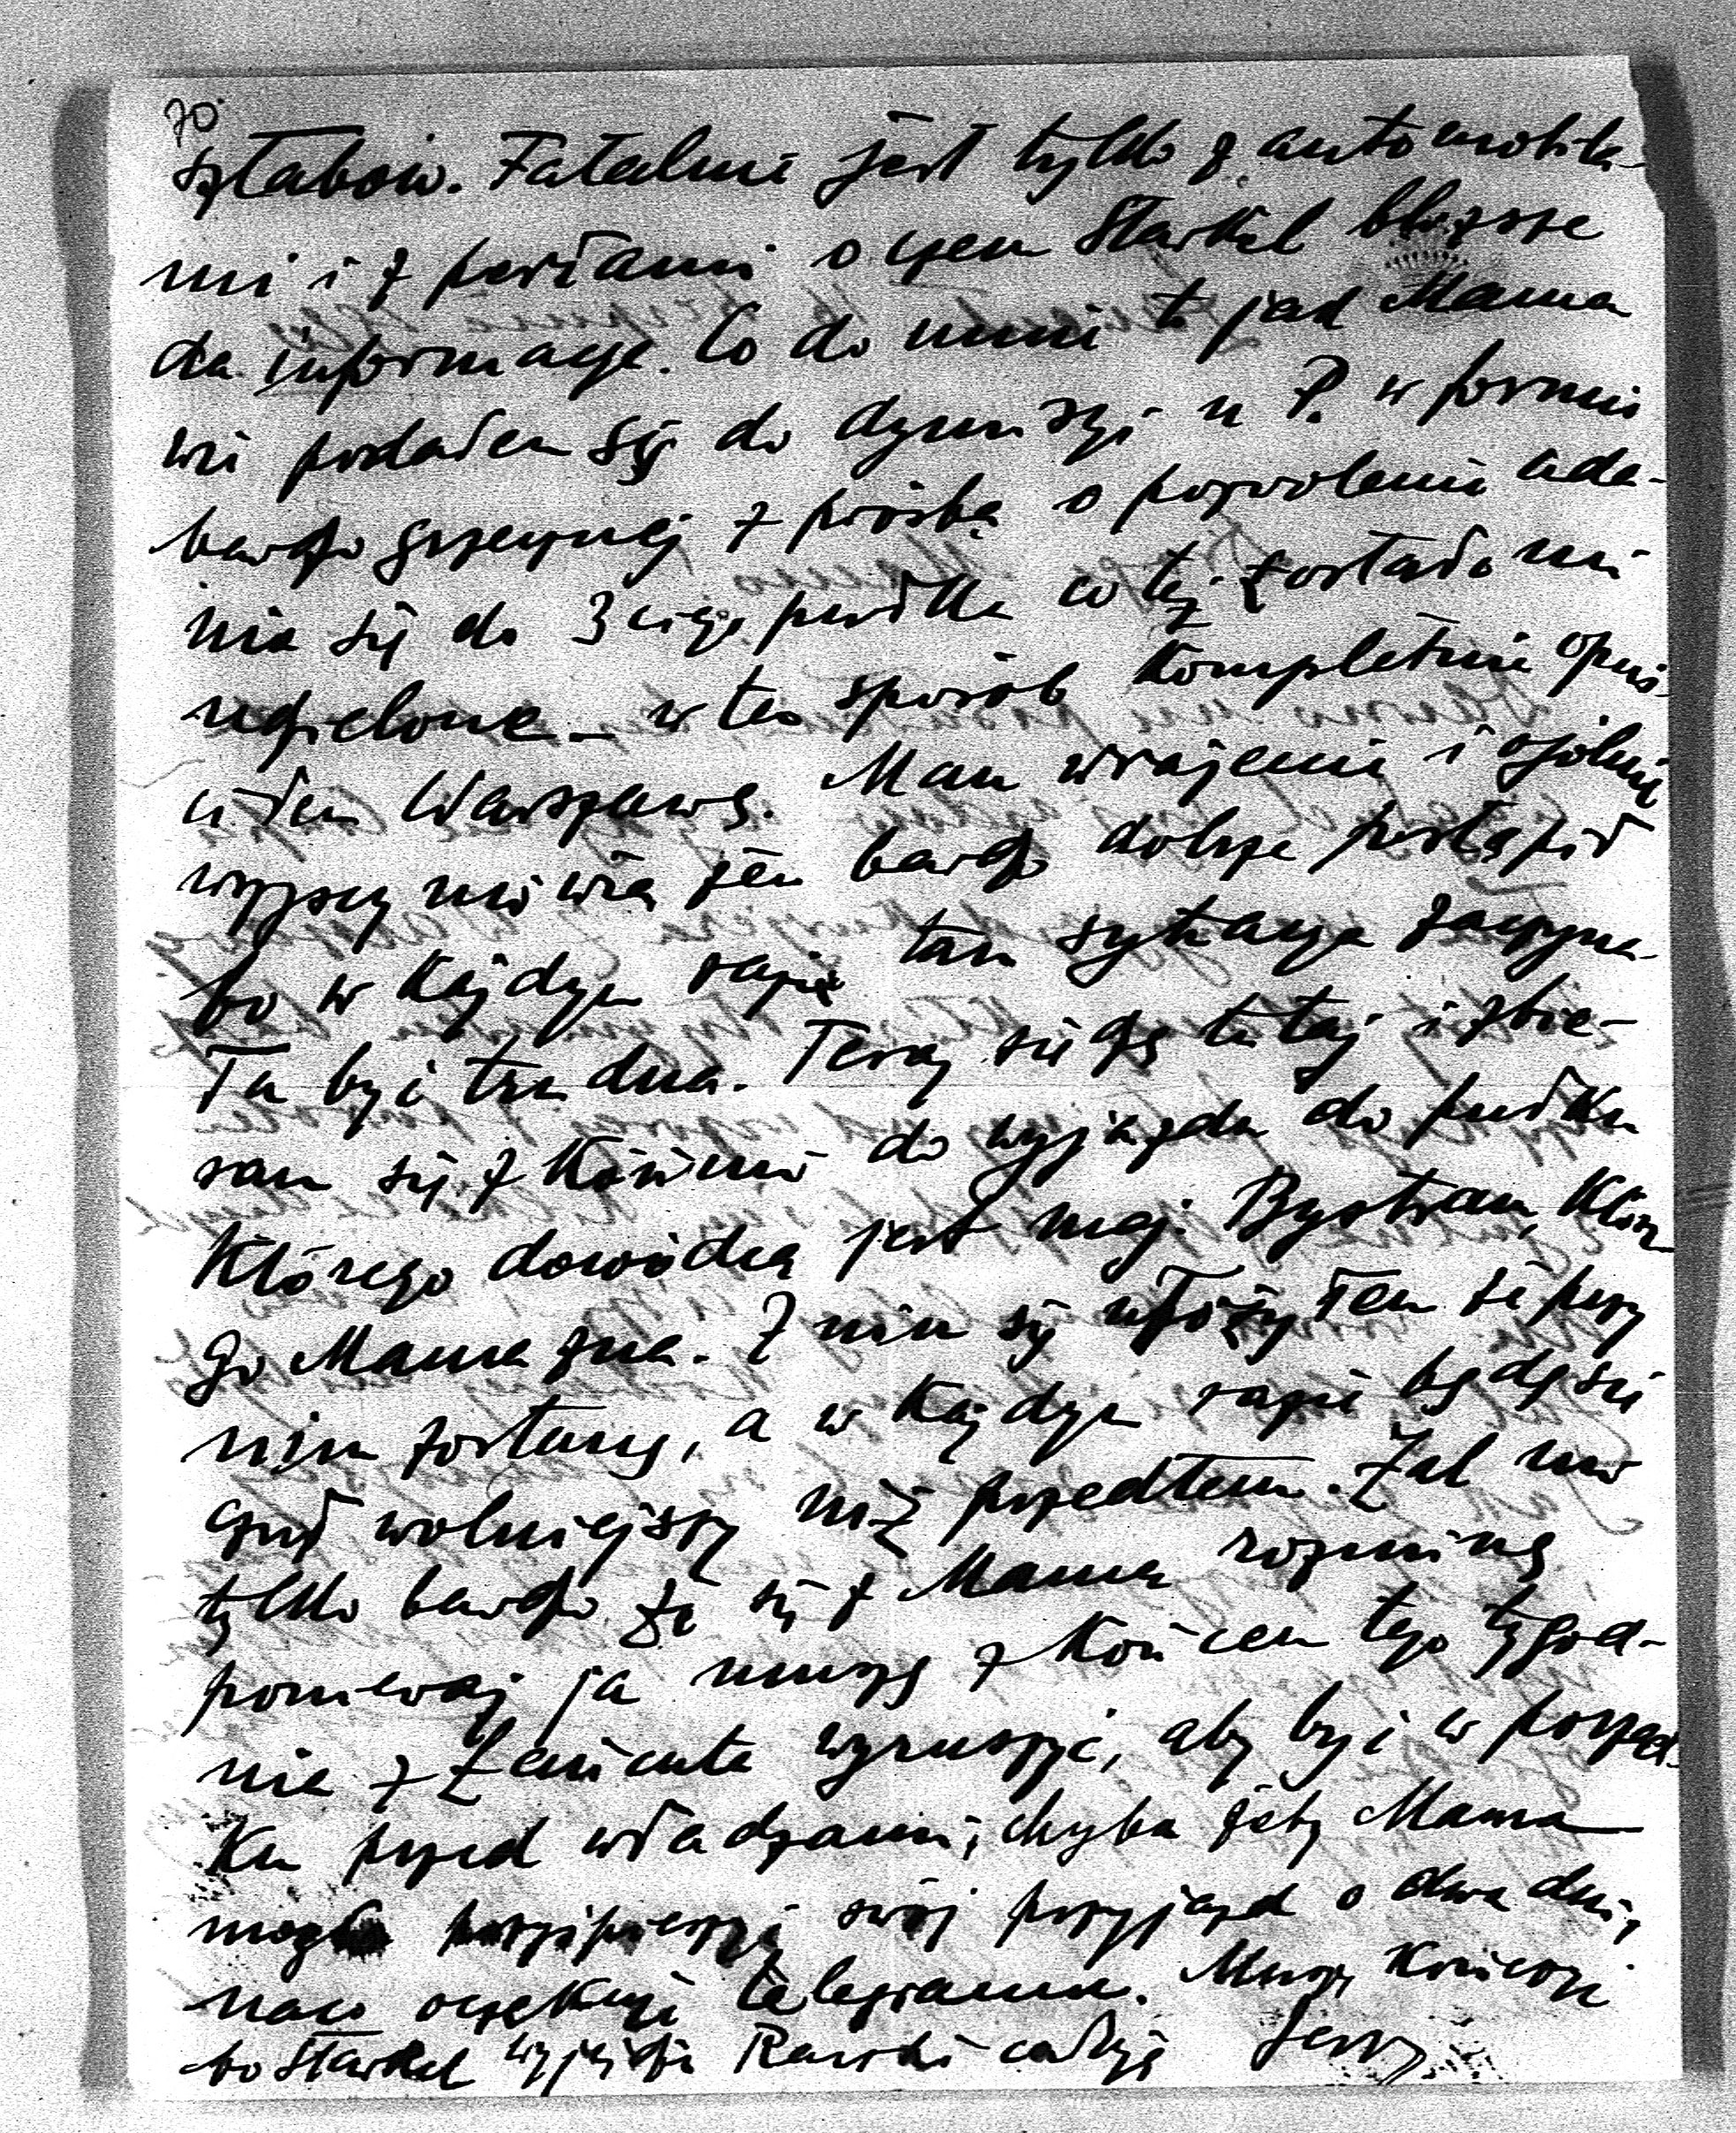 70
sztabów. Fatalnie jest tylko z automobila-
mi i z pasłami o czem Starkel bliższe
da informacye. Co do mnie to jak Mama
wie podałem się do dymisyi u P. w formie
bardzo grzecznej z prośbą o pozwolenie uda-
nia się do 3ciego pułku co też zostało mi
udzielone – w ten sposób kompletnie opuś-
ciłem Warszawę. Mam wrażenie i ogólnie
wszyscy mówią żem bardzo dobrze postąpił
bo w każdym razie tam sytuacya zaczyna-
ła być trudna. Teraz siedzę tutaj i zbie-
ram się z końmi do wyjazdu do pułku
którego dowódcą jest maj. Bystram, które
go Mama zna. Z nim się ułożyłem że przy
nim zostanę, a w każdym razie będę się
czuł wolniejszy niż przedtem. Żal mi
tylko bardzo że się z Mamą rozminę
ponieważ ja muszę z końcem tego tygod-
nia z Łańcuta wyruszyć, aby być w porząd-
ku przed władzami, chyba żeby Mama
mogła przyśpieszyć swój przyjazd o dwa dni,
na co oczekuję telegramu. Muszę kończyć
bo Starkel wyjeżdża Rączki całuję Jerzy